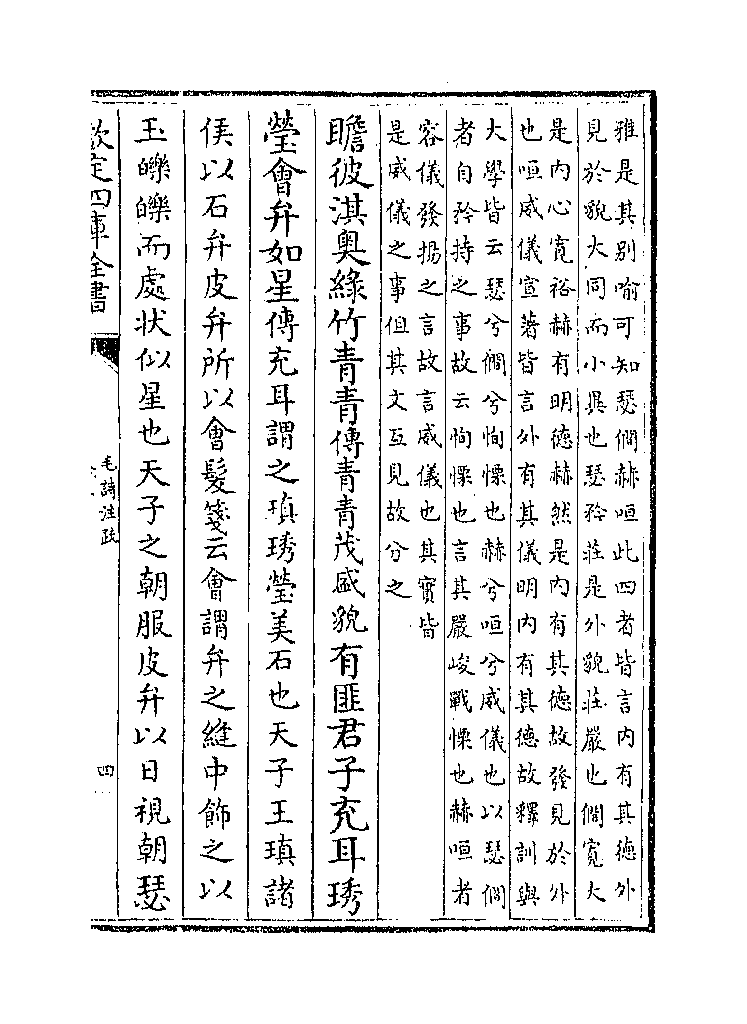 雅是其别喻可知瑟僩赫咺此四者皆言内有其德外
見於貌大同而小異也瑟矜莊是外貌莊嚴也僩寛大
是内心寛裕赫有明德赫然是内有其德故發見於外
也咺威儀宣著皆言外有其儀明内有其德故釋訓與
大學皆云瑟兮僩兮恂慄也赫兮咺兮威儀也以瑟僩
者自矜持之事故云恂慄也言其嚴峻戰慄也赫咺者
容儀發揚之言故言威儀也其實皆
是威儀之事但其文互見故分之
瞻彼淇奥緑竹青青傳青青茂盛貌有匪君子充耳琇
瑩會弁如星傳充耳謂之瑱琇瑩美石也天子玉瑱諸
侯以石弁皮弁所以會髮箋云會謂弁之縫中飾之以
玉皪皪而處狀似星也天子之朝服皮弁以日視朝瑟
欽定四庫全書
毛詩注疏
四